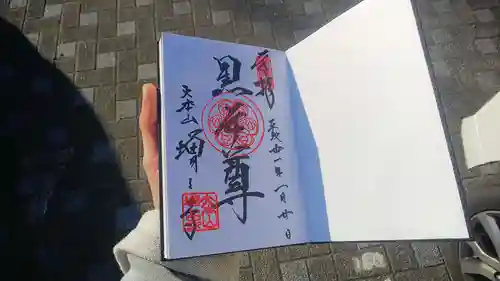 奉拝
平成廿一年一月廿日
黒本尊
大本山増上寺